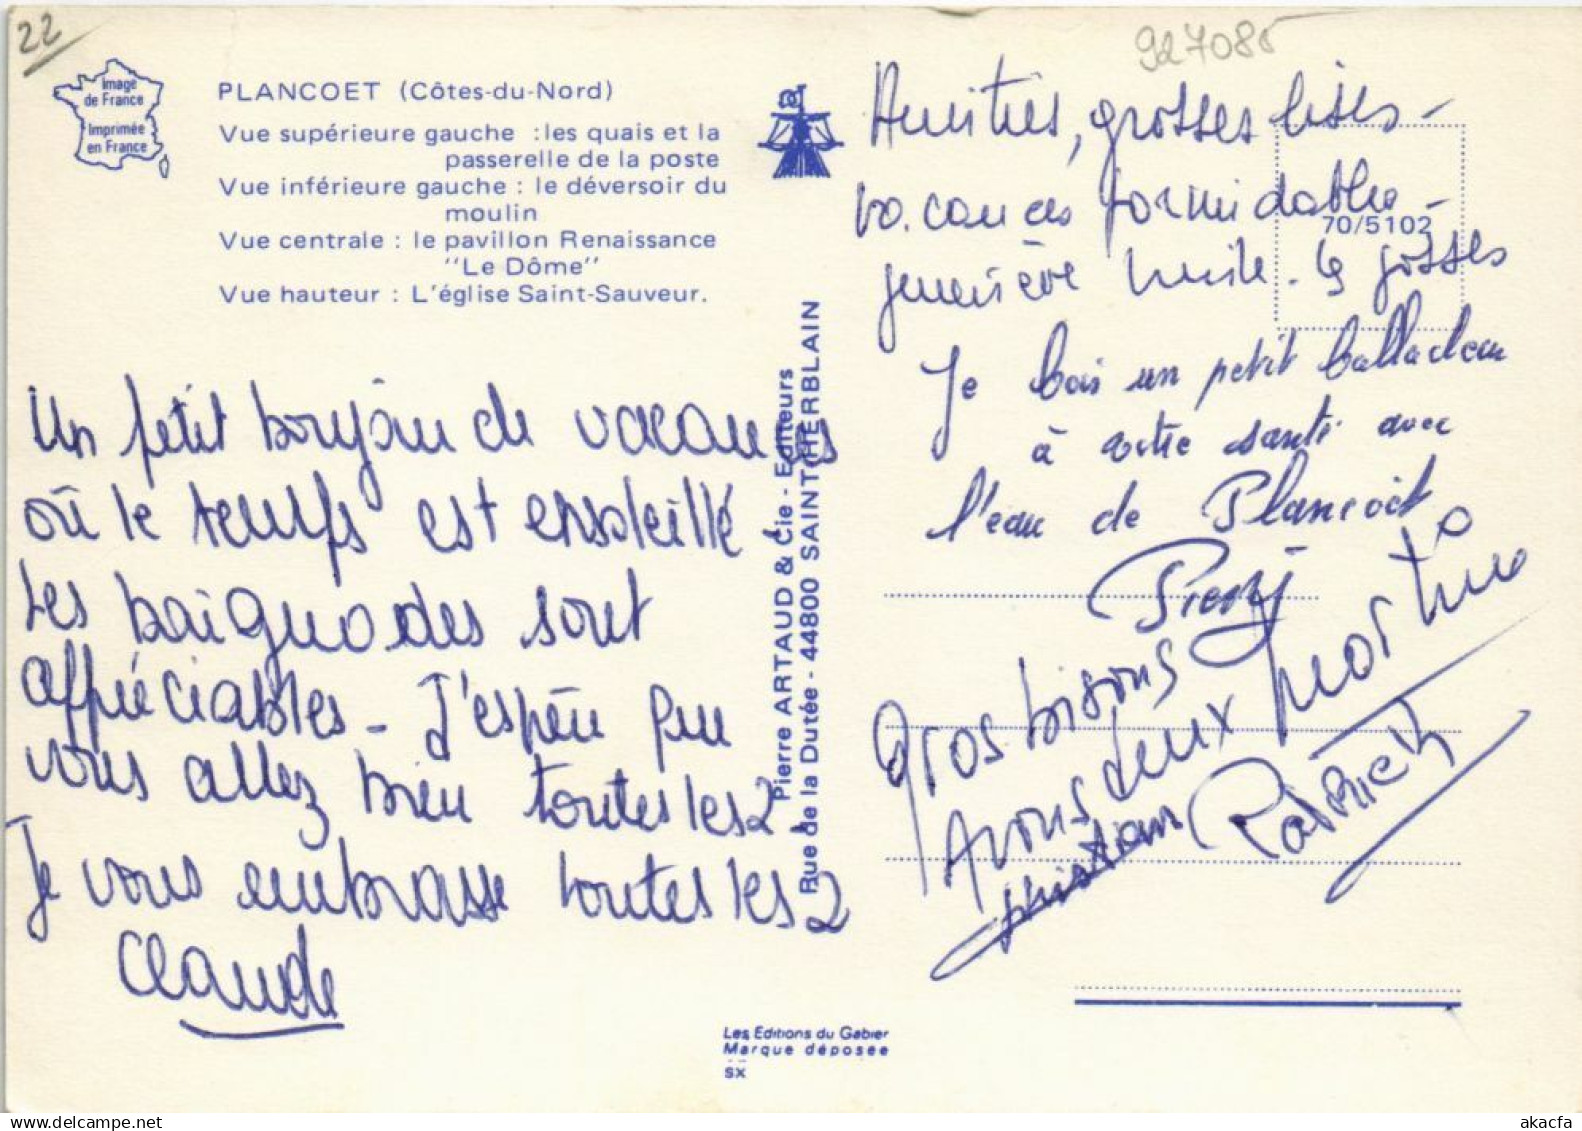 22
927085
Image
de France
Imprimée
en France
PLANCOET (Côtes-du-Nord)
Vue supérieure gauche : les quais et la
passerelle de la poste
Vue inférieure gauche : le déversoir du
moulin
Vue centrale : le pavillon Renaissance
"Le Dôme"
Vue hauteur : L'église Saint-Sauveur.
Un petit bonjour de vacances
où le temps est ensoleillé
Les baignades sont
appréciables - J'espère que
vous allez bien toutes les 2.
Je vous embrasse toutes les 2
Claude
Pierre ARTAUD & Cie - Editeurs
Rue de la Dutée - 44800 SAINT-HERBLAIN
Amitiés, grosses bises -
vacances formidables -
70/5102
geneviève les gosses
Je bois un petit
à votre santé avec
l'eau de Plancoët
Gros bisous
à vous deux Martine
christian
Les Editions du Gabier
Marque déposée
SX
akacfa